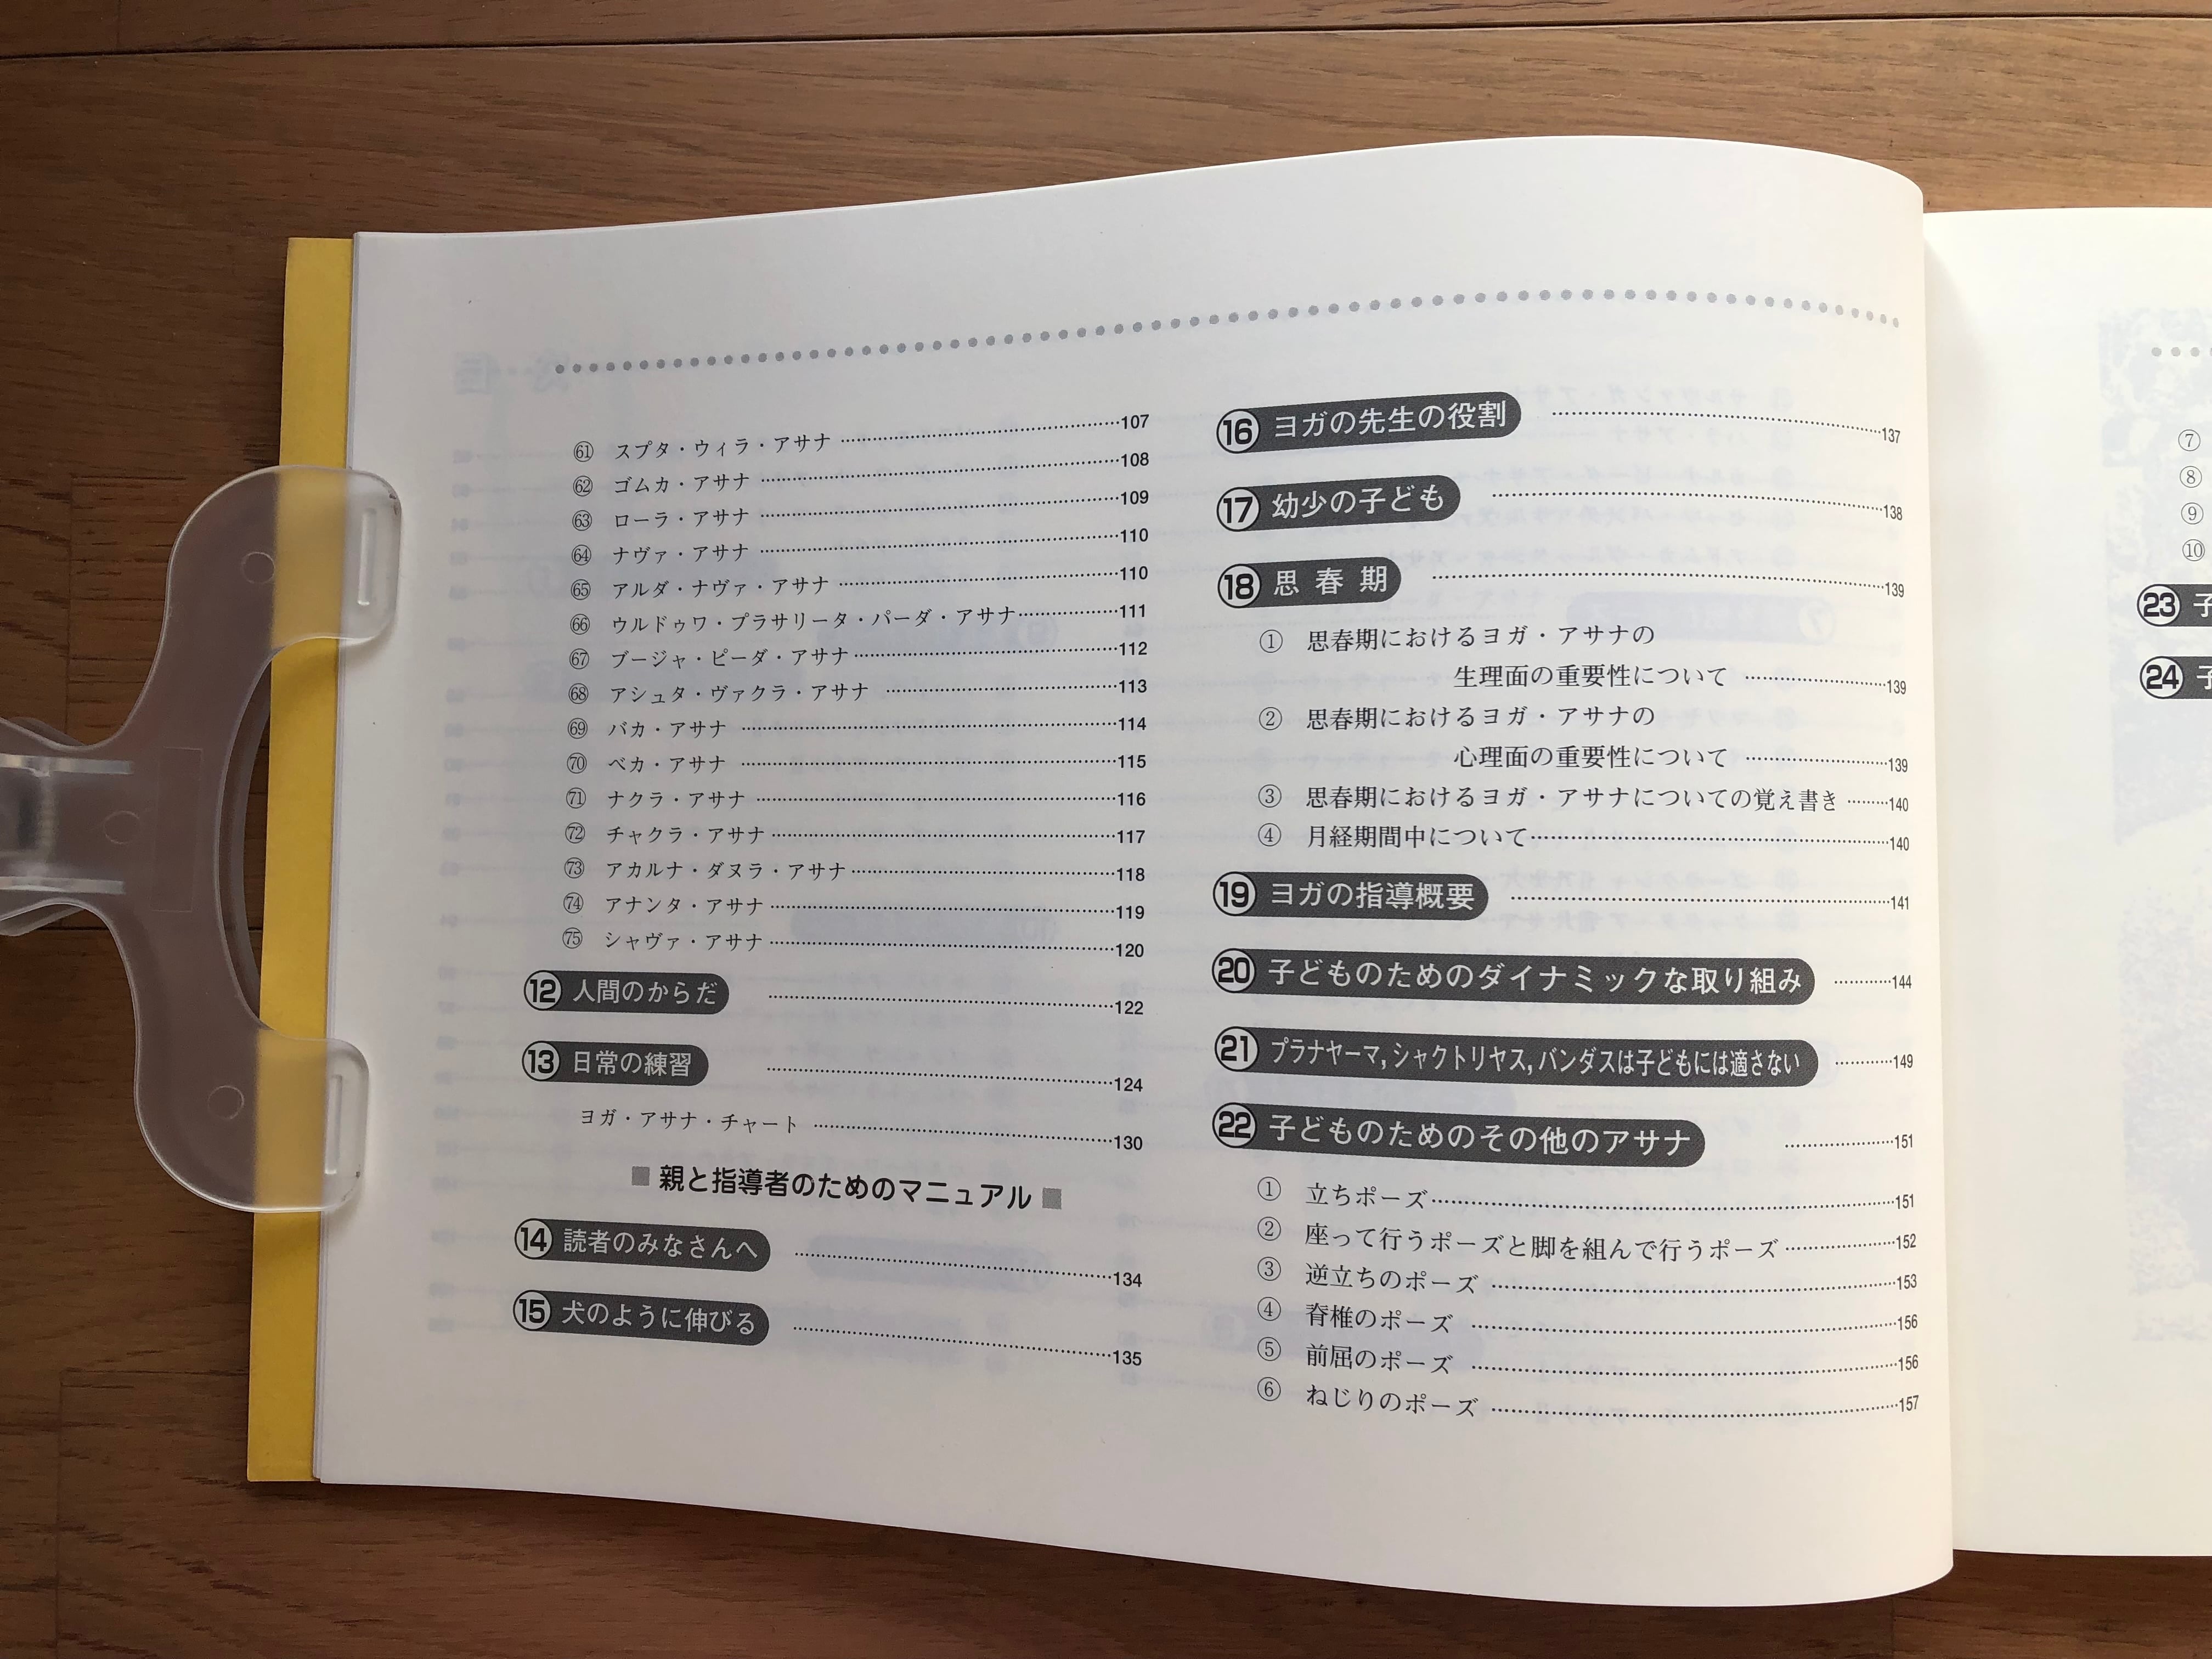 ㉑ スプタ・ウィラ・アサナ ……107
㉒ ゴムカ・アサナ ……108
㉓ ローラ・アサナ ……109
㉔ ナヴァ・アサナ ……110
㉕ アルダ・ナヴァ・アサナ ……110
㉖ ウルドゥワ・プラサリータ・パーダ・アサナ……111
㉗ ブージャ・ピーダ・アサナ……112
㉘ アシュタ・ヴァクラ・アサナ ……113
㉙ バカ・アサナ ……114
70 ベカ・アサナ ……115
71 ナクラ・アサナ ……116
72 チャクラ・アサナ……117
73 アカルナ・ダヌラ・アサナ……118
74 アナンタ・アサナ……119
75 シャヴァ・アサナ……120
⑫ 人間のからだ ……122
⑬ 日常の練習 ……124
ヨガ・アサナ・チャート ……130
■ 親と指導者のためのマニュアル ■
⑭ 読者のみなさんへ ……134
⑮ 犬のように伸びる ……135
⑯ ヨガの先生の役割 ……137
⑰ 幼少の子ども ……138
⑱ 思春期 ……139
① 思春期におけるヨガ・アサナの
生理面の重要性について ……139
② 思春期におけるヨガ・アサナの
心理面の重要性について ……139
③ 思春期におけるヨガ・アサナについての覚え書き ……140
④ 月経期間中について……140
⑲ ヨガの指導概要 ……141
⑳ 子どものためのダイナミックな取り組み ……144
㉑ プラナヤーマ,シャクトリヤス,バンダスは子どもには適さない ……149
㉒ 子どものためのその他のアサナ ……151
① 立ちポーズ……151
② 座って行うポーズと脚を組んで行うポーズ……152
③ 逆立ちのポーズ ……153
④ 脊椎のポーズ ……156
⑤ 前屈のポーズ ……156
⑥ ねじりのポーズ ……157
⑦
⑧
⑨
⑩
㉓ 子
㉔ 子